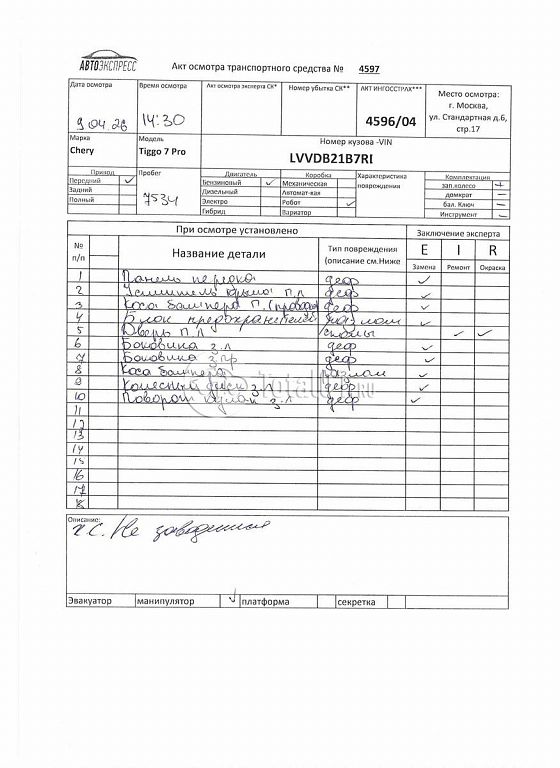 АВТОЭКСПРЕСС
Акт осмотра транспортного средства № 4597
Дата осмотра Время осмотра Акт осмотра эксперта СК* Номер убытка СК** АКТ ИНГОССТРАХ*** Место осмотра:
г. Москва,
ул. Стандартная д.6,
стр.17
9.04.26 14:30 4596/04
Марка Модель Номер кузова -VIN
Chery Tiggo 7 Pro LVVDB21B7RI
Привод Пробег Двигатель Коробка Характеристика повреждения Комплектация
Передний ✓ Бензиновый ✓ Механическая зап.колесо +
Задний 7534 Дизельный Автомат-кая домкрат -
Полный Электро Робот ✓ бал. Ключ -
Гибрид Вариатор Инструмент -
При осмотре установлено Заключение эксперта
№ п/п Название детали Тип повреждения (описание см.Ниже E I R
Замена Ремонт Окраска
1 Панель передка деф ✓
2 Усилитель крыла п.л деф ✓
3 Коса бампера П. (проводка) деф ✓
4 Блок предохранителей разлом ✓
5 Дверь П Л сколы ✓ ✓
6 Боковина з.л деф ✓
7 Боковина з.пр деф ✓
8 Коса бампера разлом ✓
9 Колесный диск з.л деф ✓
10 Поворот кулак з.л деф ✓
11
12
13
14
15
16
17
18
Описание:
Х.С. Не заводится
Эвакуатор манипулятор ✓ платформа секретка
Total01.ru